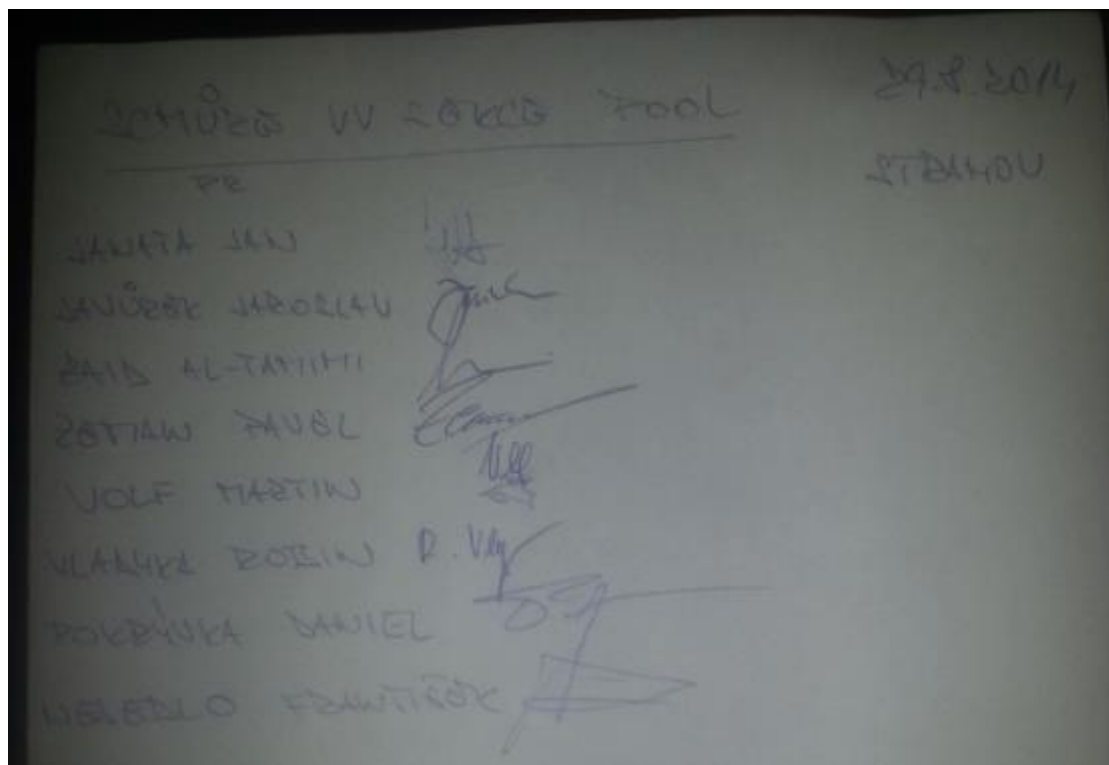 SCHŮZE VV SEKCE POOL
29.8.2014
STRAHOV
JANATA JAN
JAVŮREK JAROSLAV
ZAID AL-TAMIMI
ZEMAN PAVEL
VOLF MARTIN
VLADYKA ROBIN R. Vly
POKRÝVKA DANIEL
NESEDLO FRANTIŠEK